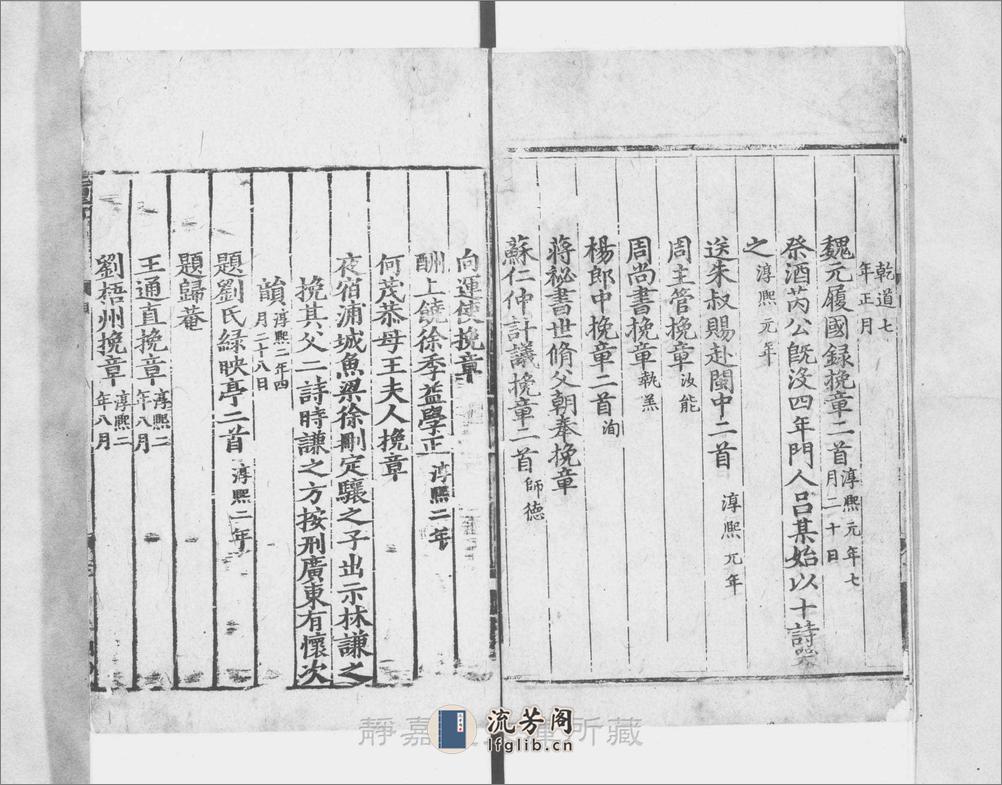 乾道七年正月
魏元履國録挽章二首 淳熙元年七月二十日
祭酒芮公旣沒四年門人吕某始以十詩哭
之 淳熙元年
送朱叔賜赴閩中二首 淳熙元年
周主管挽章 汝能
周尚書挽章 執羔
楊郎中挽章二首 洵
蔣祕書世脩父朝奉挽章
蘇仁仲計議挽章二首 師德
向運使挽章
酬上饒徐季益學正 淳熙二年
何茂恭母王夫人挽章
夜宿浦城魚梁徐刪定驤之子出示林謙之
挽其父二詩時謙之方按刑廣東有懷次
韻 淳熙二年四月二十八日
題劉氏緑映亭二首 淳熙二年
題歸菴
王通直挽章 淳熙二年八月
劉梧州挽章 淳熙二年八月
靜嘉 所藏
流芳阁
lfglib.cn